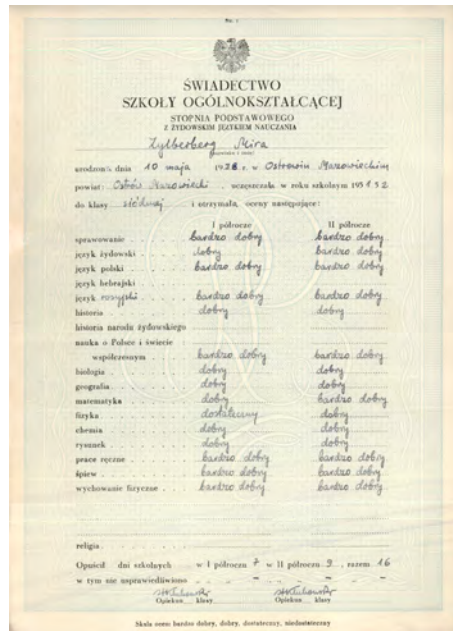 No. 1
ŚWIADECTWO
SZKOŁY OGÓLNOKSZTAŁCĄCEJ
STOPNIA PODSTAWOWEGO
Z ŻYDOWSKIM JĘZYKIEM NAUCZANIA
Zylberberg Mira
(nazwisko i imię)
urodzona dnia 10 maja 1938 r. w Ostrowiu Mazowieckim
powiat: Ostrów Mazowiecki uczęszczała w roku szkolnym 1951/52
do klasy siódmej i otrzymała oceny następujące:
I półrocze II półrocze
sprawowanie bardzo dobry bardzo dobry
język żydowski dobry bardzo dobry
język polski bardzo dobry bardzo dobry
język hebrajski
język rosyjski bardzo dobry bardzo dobry
historia dobry dobry
historia narodu żydowskiego
nauka o Polsce i świecie
współczesnym bardzo dobry bardzo dobry
biologia dobry dobry
geografia dobry dobry
matematyka dobry bardzo dobry
fizyka dostateczny dobry
chemia dobry dobry
rysunek dobry dobry
prace ręczne bardzo dobry bardzo dobry
śpiew bardzo dobry bardzo dobry
wychowanie fizyczne bardzo dobry bardzo dobry
religia
Opuścił dni szkolnych w I półroczu 7 w II półroczu 9, razem 16
w tym nie usprawiedliwiono – – –
Opiekun klasy Opiekun klasy
Skala ocen: bardzo dobry, dobry, dostateczny, niedostateczny